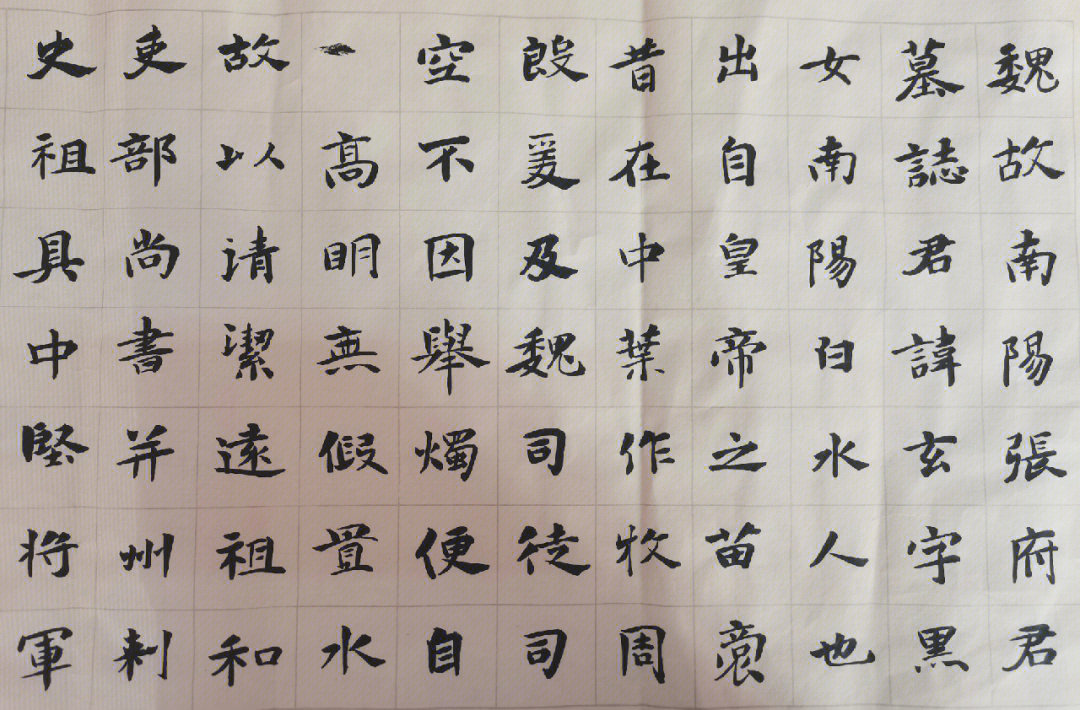 魏故南陽張府君
墓誌君諱玄字黑
女南陽白水人也
出自皇帝之苗裔
昔在中葉作牧周
殷爰及魏司徒司
空不因舉燭便自
高明無假置水
故以请潔遠祖和
吏部尚書并州刺
史祖具中堅将軍